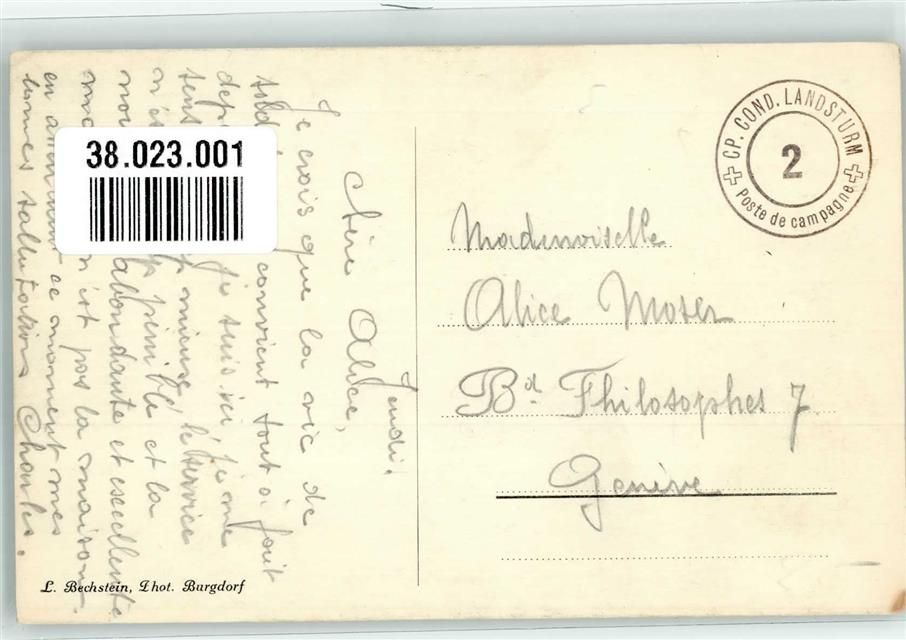 Jeudi
Chère Alice,
Je crois que la vie de
convient tout à fait
je suis ici je me
mieux, le service
pénible et la
abondante et excellente
n'est pas la maison.
en ce moment mes
bonnes salutations Charles.
L. Bechstein, Phot. Burgdorf
38.023.001
CP. COND. LANDSTURM
2
Poste de campagne
Mademoiselle
Alice Moser
Bd. Philosophes 7
Genève